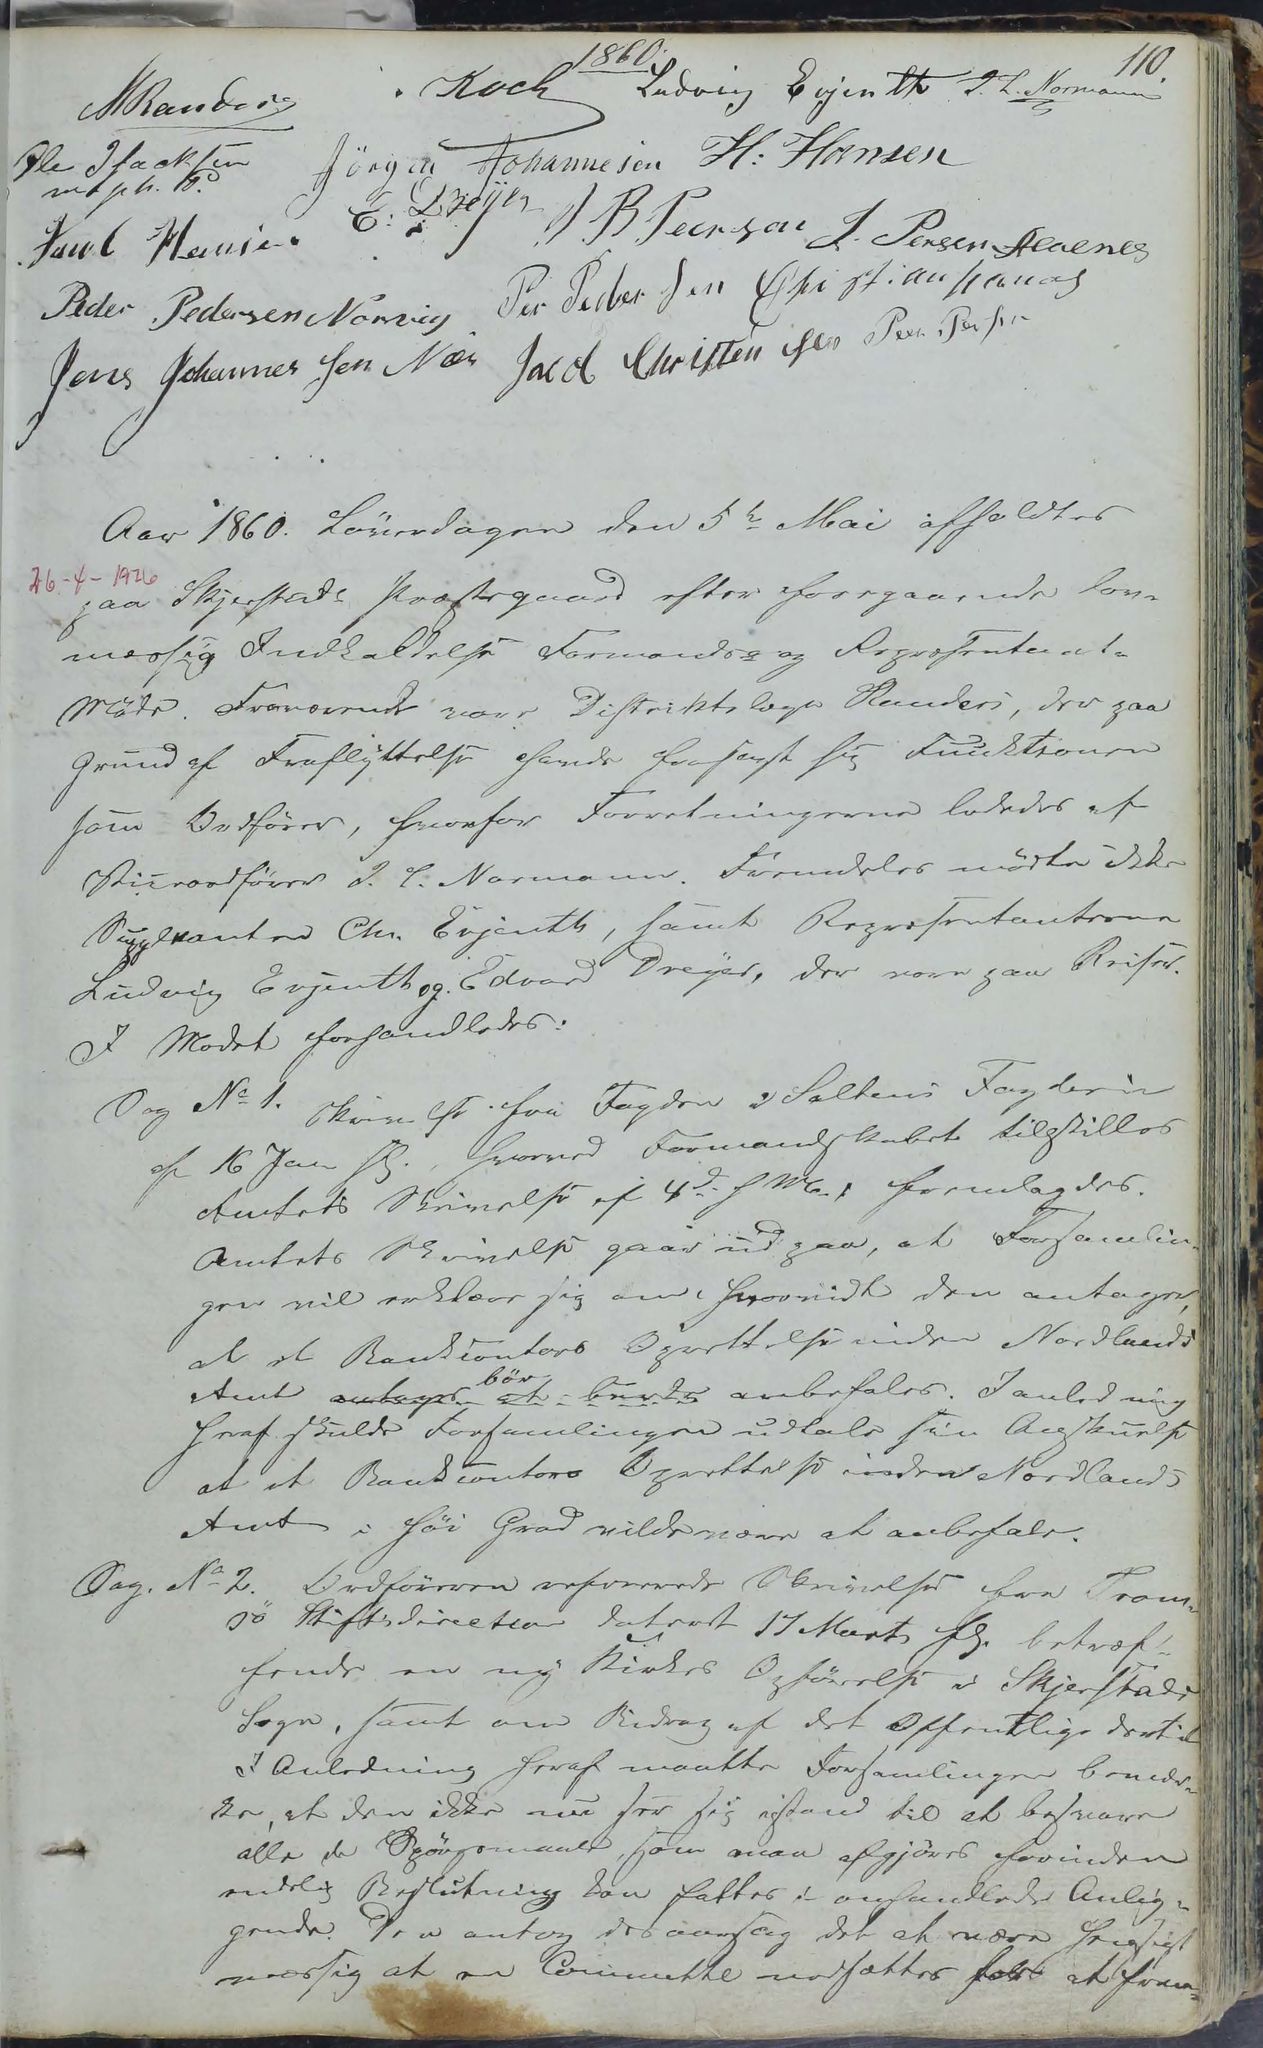 1860.
110.
Randers Koch Ludvig Evjenth J. L. Normann
Ole Isacksen Jörgen Johannesen H: Hansen
m. f. p.
Paul Hansen E. Dreyer J B Pedersen J. Persen Alvenes
Peder Pedersen Norvig Per Pedersen Christianshavns
Jens Johannes sen Næs Jacob Christensen Peer Persen
Aar 1860. Löverdagen den 5te Mai afholdtes
26-4-1926
paa Skjerstads Præstegaard efter foregaaende lov-
mæssig Indkaldelse Formands- og Repræsentant-
Møde. Fraværende vare Distriktslæge Randers, der paa
Grund af Fraflyttelse havde frasagt sig Funktionen
som Ordförer, hvorfor Forretningerne lededes af
Viceordförer J. L. Normann. Fremdeles mödte ikke
Suppleanten Chr. Evjenth, samt Repræsentanterne
Ludvig Evjenth og Edvard Dreyer, der vare paa Reiser.
I Mødet forhandledes:
Sag No 1. Skrivelse fra Fogden i Saltens Fogderie
af 16 Jan. sl., hvorved Formandskabet tilstilles
Amtets Skrivelse af 4de s. M., fremlagdes.
Amtets Skrivelse gaar ud paa, at Forsamlin-
gen vil erklære sig om, hvorvidt den antager,
at et Bankcontors Oprettelse inden Nordlands
Amt antages at burde bör anbefales. I anledning
heraf skulde Forsamlingen udtale sin Anskuelse
at et Bankcontors Oprettelse inden Nordlands
Amt i höi Grad vilde være at anbefale.
Sag. No 2. Ordföreren refererede Skrivelse fra Trom-
sö Stiftsdirection dateret 17 Marts sl. betref-
fende en ny Kirkes Opförelse i Skjerstads
Sogn, samt om Bidrag af det Offentlige dertil
I Anledning heraf maatte Forsamlingen bemær-
ke, at den ikke nu ser sig istand til at besvare
alle de Spörgsmaale, som maa afgjöres forinden
endelig Beslutning kan fattes i omhandlede Anlig-
gende. Den antog desaarsag det at være hensigt
mæssig at en Committe nedsættes for at frem-